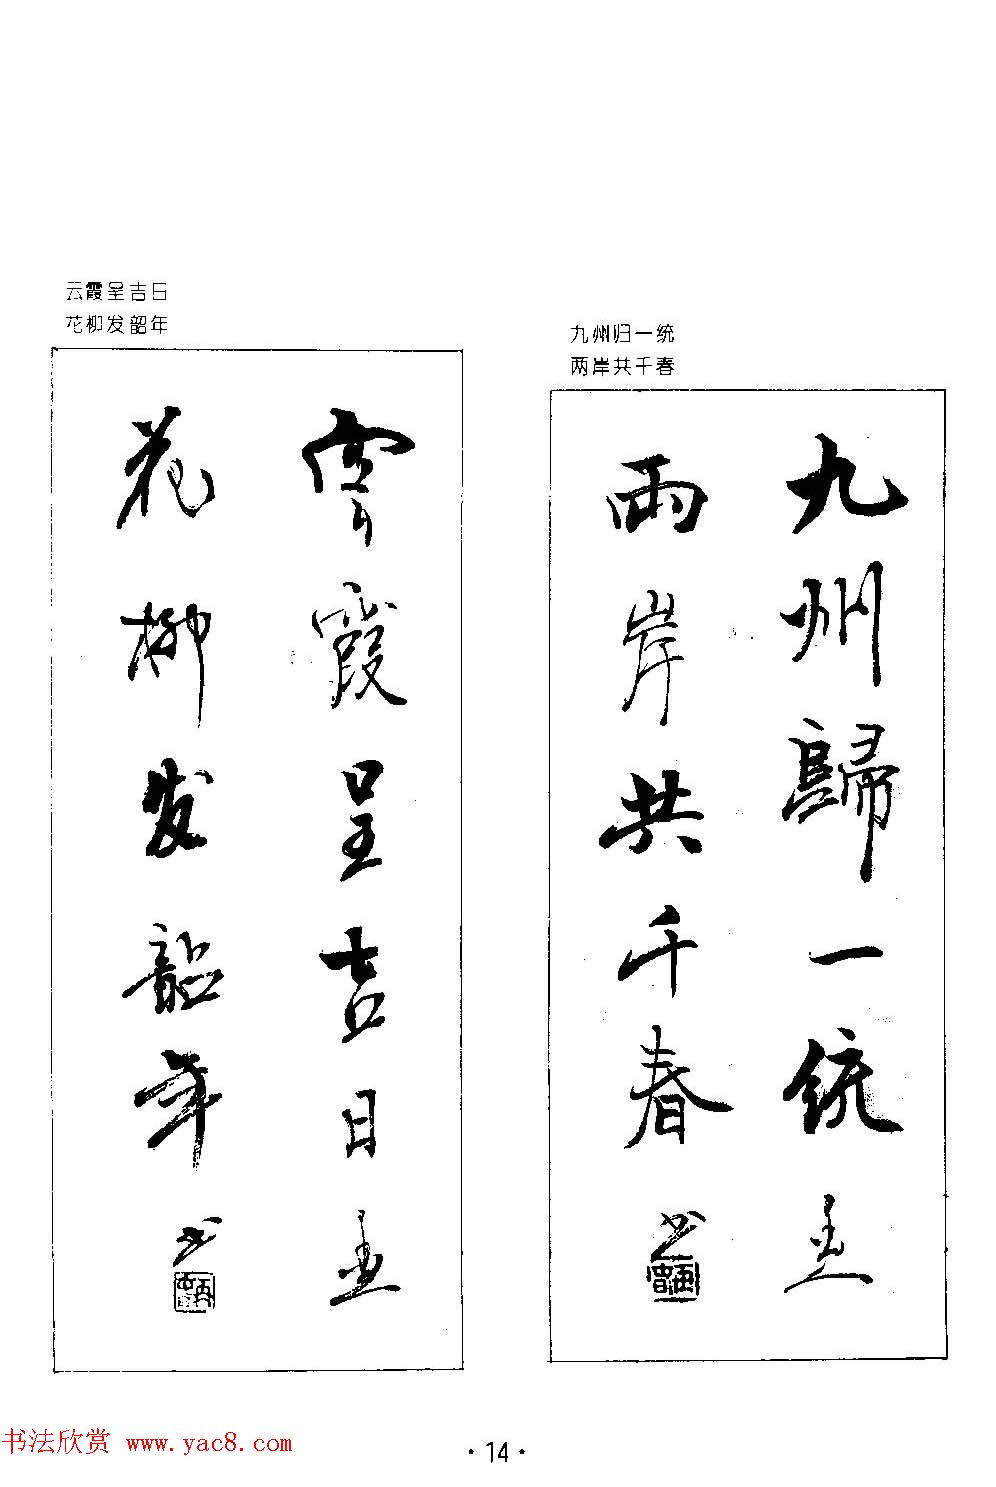 云霞呈吉日
花柳发韶年
九州归一统
两岸共千春
雲霞呈吉日
花柳发韶年
书
九州歸一统
兩岸共千春
书
书法欣赏 www.yac8.com
·14·